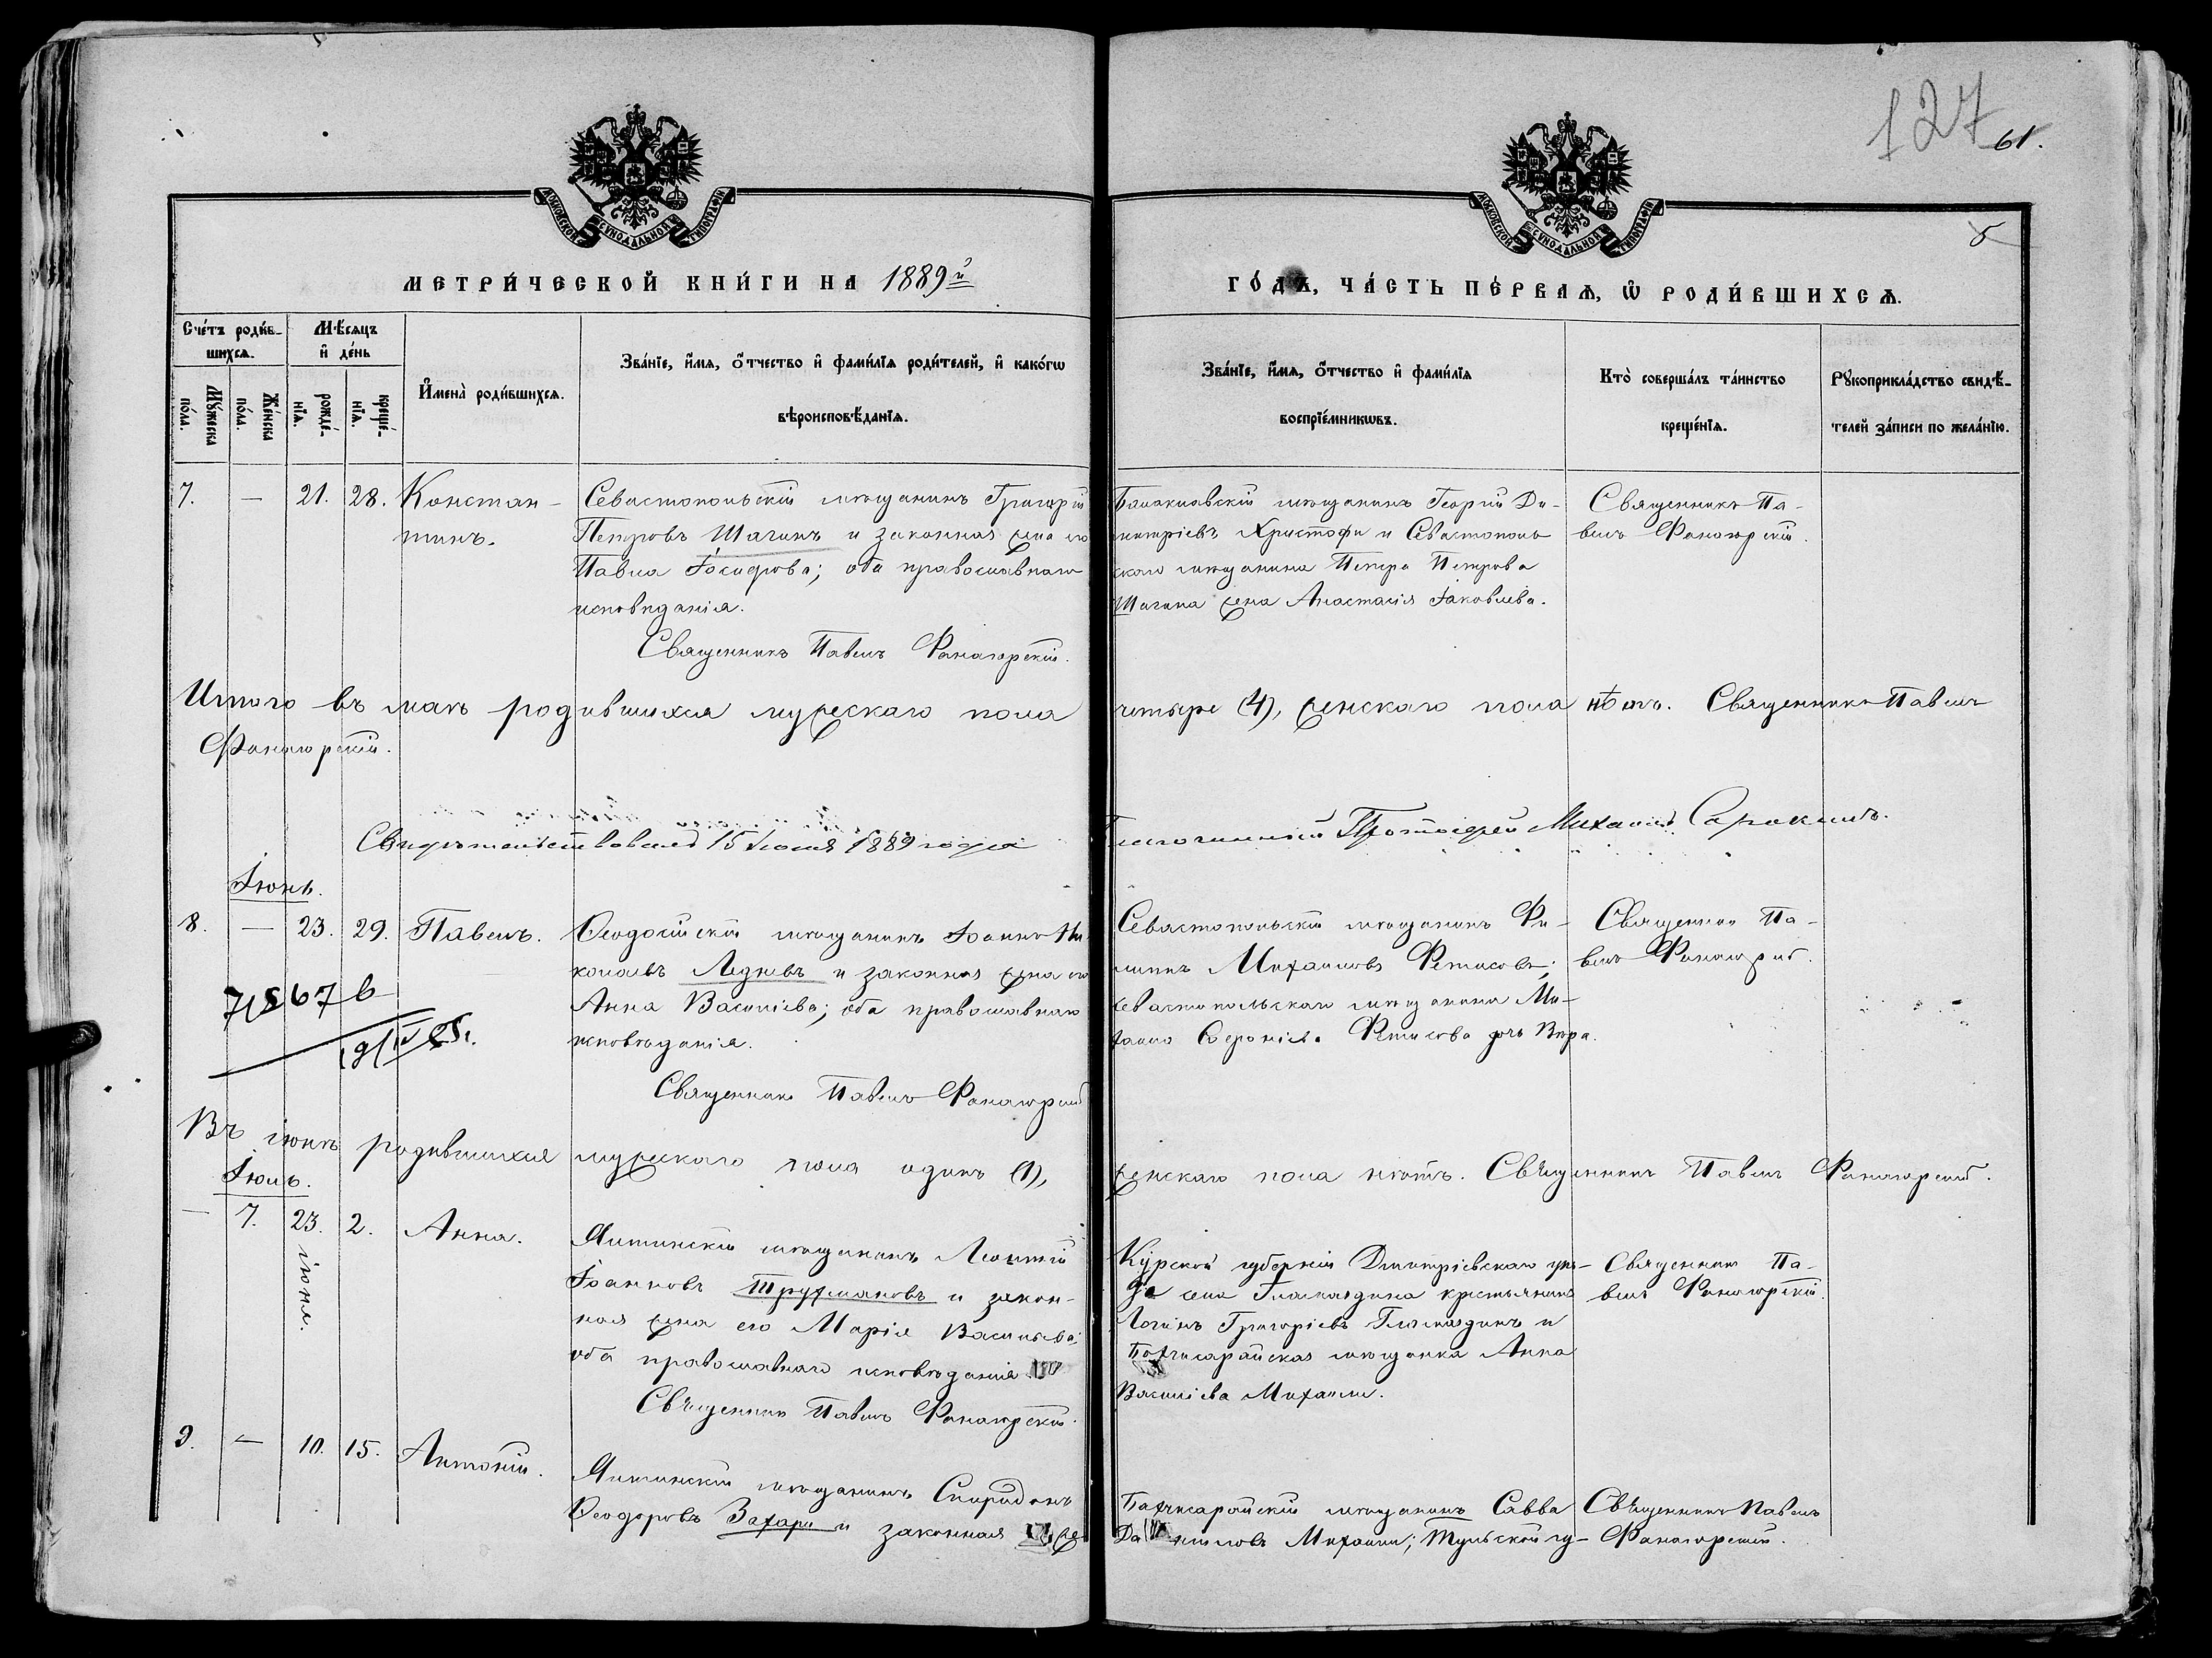 127
61.
5
МОСКОВСКОЙ СѴНОДАЛЬНОЙ ТИПОГРАФІИ
МОСКОВСКОЙ СѴНОДАЛЬНОЙ ТИПОГРАФІИ
МЕТРИ́ЧЕСКОЙ КНИ́ГИ НА 1889й
ГО́ДЪ, ЧА́СТЬ ПЕ́РВАѦ, Ѽ РОДИ́ВШИХСѦ.
Сче́тъ роди́в-
шихсѧ.
Мꙋ́жеска по́ла.
Же́нска по́ла.
Мѣ́сѧцъ
и҆ де́нь
рожде́-
нїѧ.
креще́-
нїѧ.
И҆мена̀ роди́вшихсѧ.
Зва́нїе, и҆́мѧ, ѻ҆́тчество и҆ фами́лїѧ роди́телей, и҆ како́гѡ
вѣроисповѣ́данїѧ.
Зва́нїе, и҆́мѧ, ѻ҆́тчество и҆ фами́лїѧ
воспрїе́мникѡвъ.
Кто̀ соверша́лъ та́инство
креще́нїѧ.
Рꙋкоприкла́дство свидѣ́-
телей за́писи по жела́нїю.
7. — 21. 28. Констан-
тинъ.
Севастопольскій мѣщанинъ Григорій
Петровъ Шагинъ и законная жена его
Павла Іосифова; оба православнаго
исповѣданія.
Священникъ Павелъ Фанагорскій.
Балаклавскій мѣщанинъ Георгій Ди-
митріевъ Христофи и Севастополь
скаго мѣщанина Петра Петрова
Шагина жена Анастасія Іаковлева.
Священникъ Па-
велъ Фанагорскій.
Итого въ маѣ родившихся мужескаго пола четыре (4), женскаго пола нѣтъ. Священникъ Павелъ
Фанагорскій.
Свидѣтельствовалъ 15 Іюня 1889 года Благочинный Протоіерей Михаилъ
Іюнь.
8. — 23. 29. Павелъ.
Ѳеодосійскій мѣщанинъ Іоаннъ Ни-
колаевъ Ледневъ и законная жена его
Анна Василіева; оба православнаго
исповѣданія.
Священникъ Павелъ Фанагорскій
Севастопольскій мѣщанинъ Фи-
липпъ Михаиловъ Фетисовъ;
севастопольскаго мѣщанина Ми-
хаила Фетисова дочь Вѣра.
Священникъ Па-
велъ Фанагорскій.
Въ іюнѣ родившихся мужескаго пола одинъ (1), женскаго пола нѣтъ. Священникъ Павелъ Фанагорскій.
Іюль.
— 7. 23. іюня. 2. Анна.
Ялтинскій мѣщанинъ Леонтій
Іоанновъ Трухмановъ и закон-
ная жена его Марія Васильева;
оба православнаго исповѣданія.
Священникъ Павелъ Фанагорскій.
Курской губерніи Дмитріевскаго уѣз-
да села крестьянинъ
Логинъ Григоріевъ и
Бахчисарайская мѣщанка Анна
Василіева Михаили.
Священникъ Па-
велъ Фанагорскій.
9. — 10. 15. Антоній.
Ялтинскій мѣщанинъ Спиридонъ
Ѳеодоровъ Захари и законная же
Бахчисарайскій мѣщанинъ Савва
Даниловъ Михаили; Тульской гу-
Священникъ Павелъ
Фанагорскій.